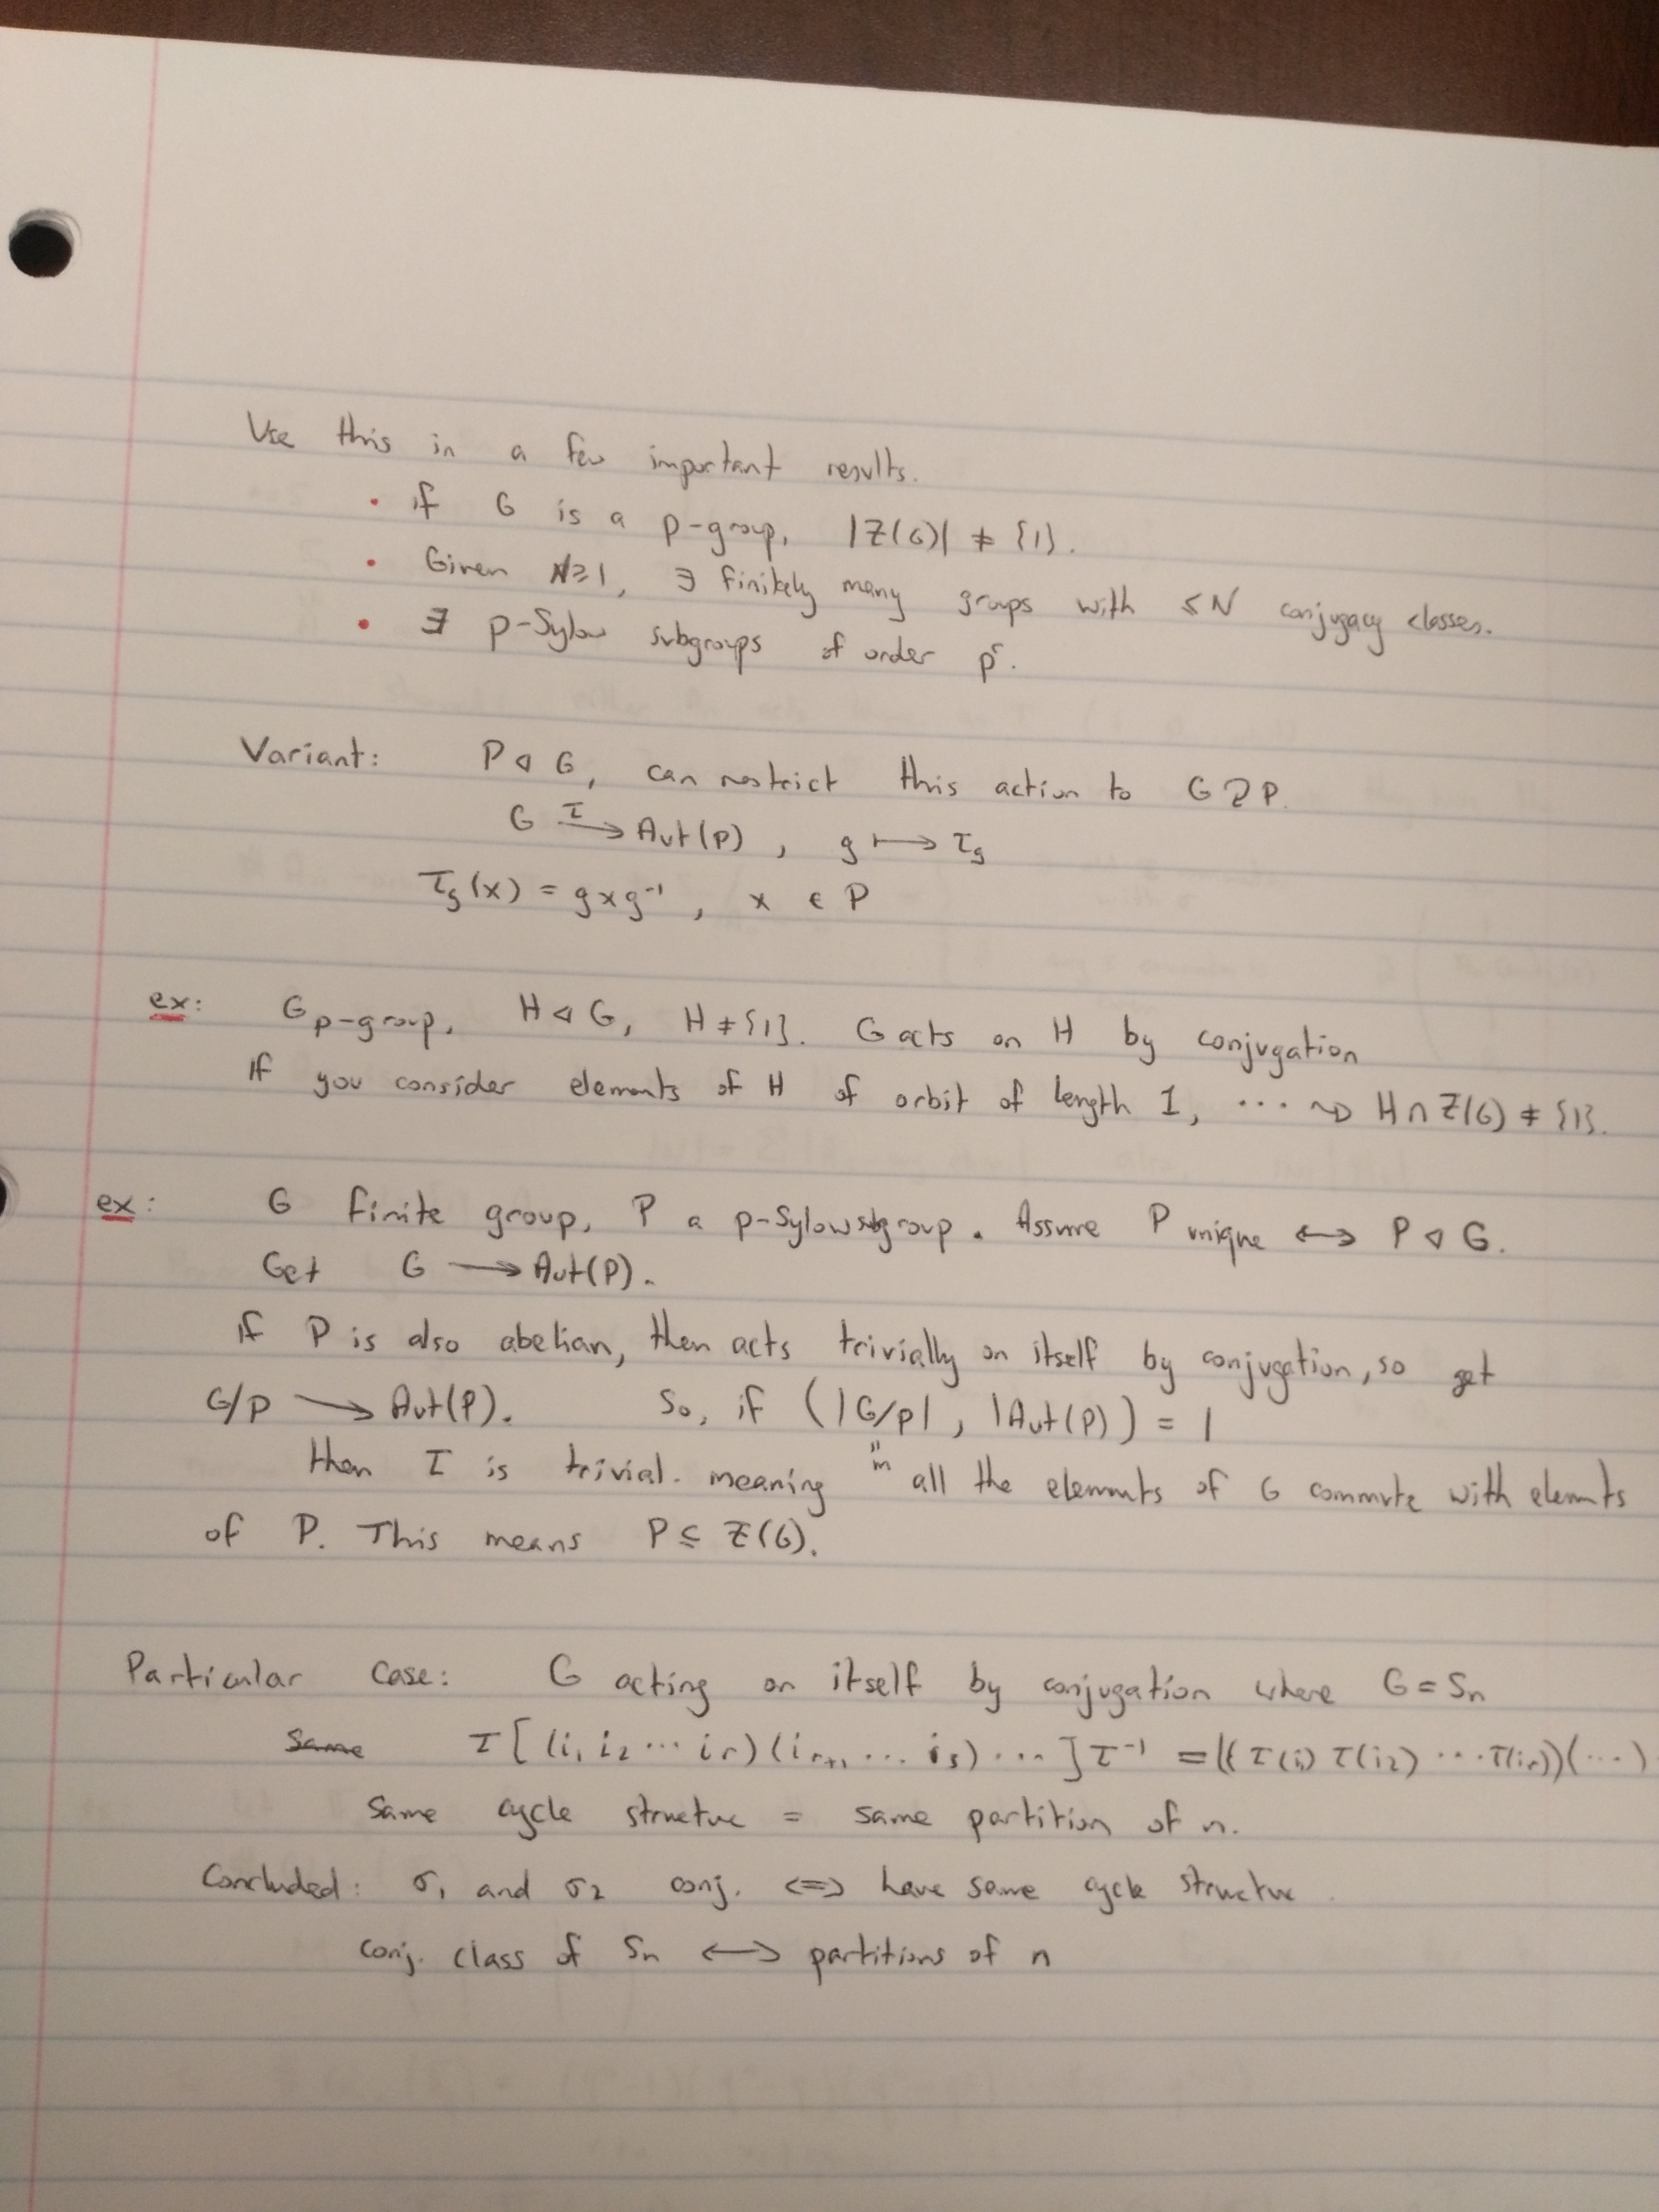 Use this in a few important results.
• if G is a p-group, |Z(G)| ≠ {1}.
• Given N≥1, ∃ finitely many groups with ≤N conjugacy classes.
• ∃ p-Sylow subgroups of order pʳ.
Variant: P ◁ G, can restrict this action to G ⊋ P.
G —τ→ Aut(P), g ↦ τg
τg(x) = gxg⁻¹, x ∈ P
ex: G p-group, H ◁ G, H ≠ {1}. G acts on H by conjugation
If you consider elements of H of orbit of length 1, ... ⇝ H ∩ Z(G) ≠ {1}.
ex: G finite group, P a p-Sylow subgroup. Assume P unique ↔ P ◁ G.
Get G → Aut(P).
if P is also abelian, then acts trivially on itself by conjugation, so get
G/P → Aut(P). So, if (|G/P|, |Aut(P)) = 1
"m
then τ is trivial. meaning all the elements of G commute with elemnts
of P. This means P ⊆ Z(G).
Particular Case: G acting on itself by conjugation where G = Sn
Same τ[(i₁ i₂ ... iᵣ)(iᵣ₊₁ ... is) ...]τ⁻¹ = ((τ(i₁) τ(i₂) ... τ(iᵣ))(...)
Same cycle structure = same partition of n.
Concluded: σ₁ and σ₂ conj. ⟺ have same cycle structure.
conj. class of Sn ⟷ partitions of n